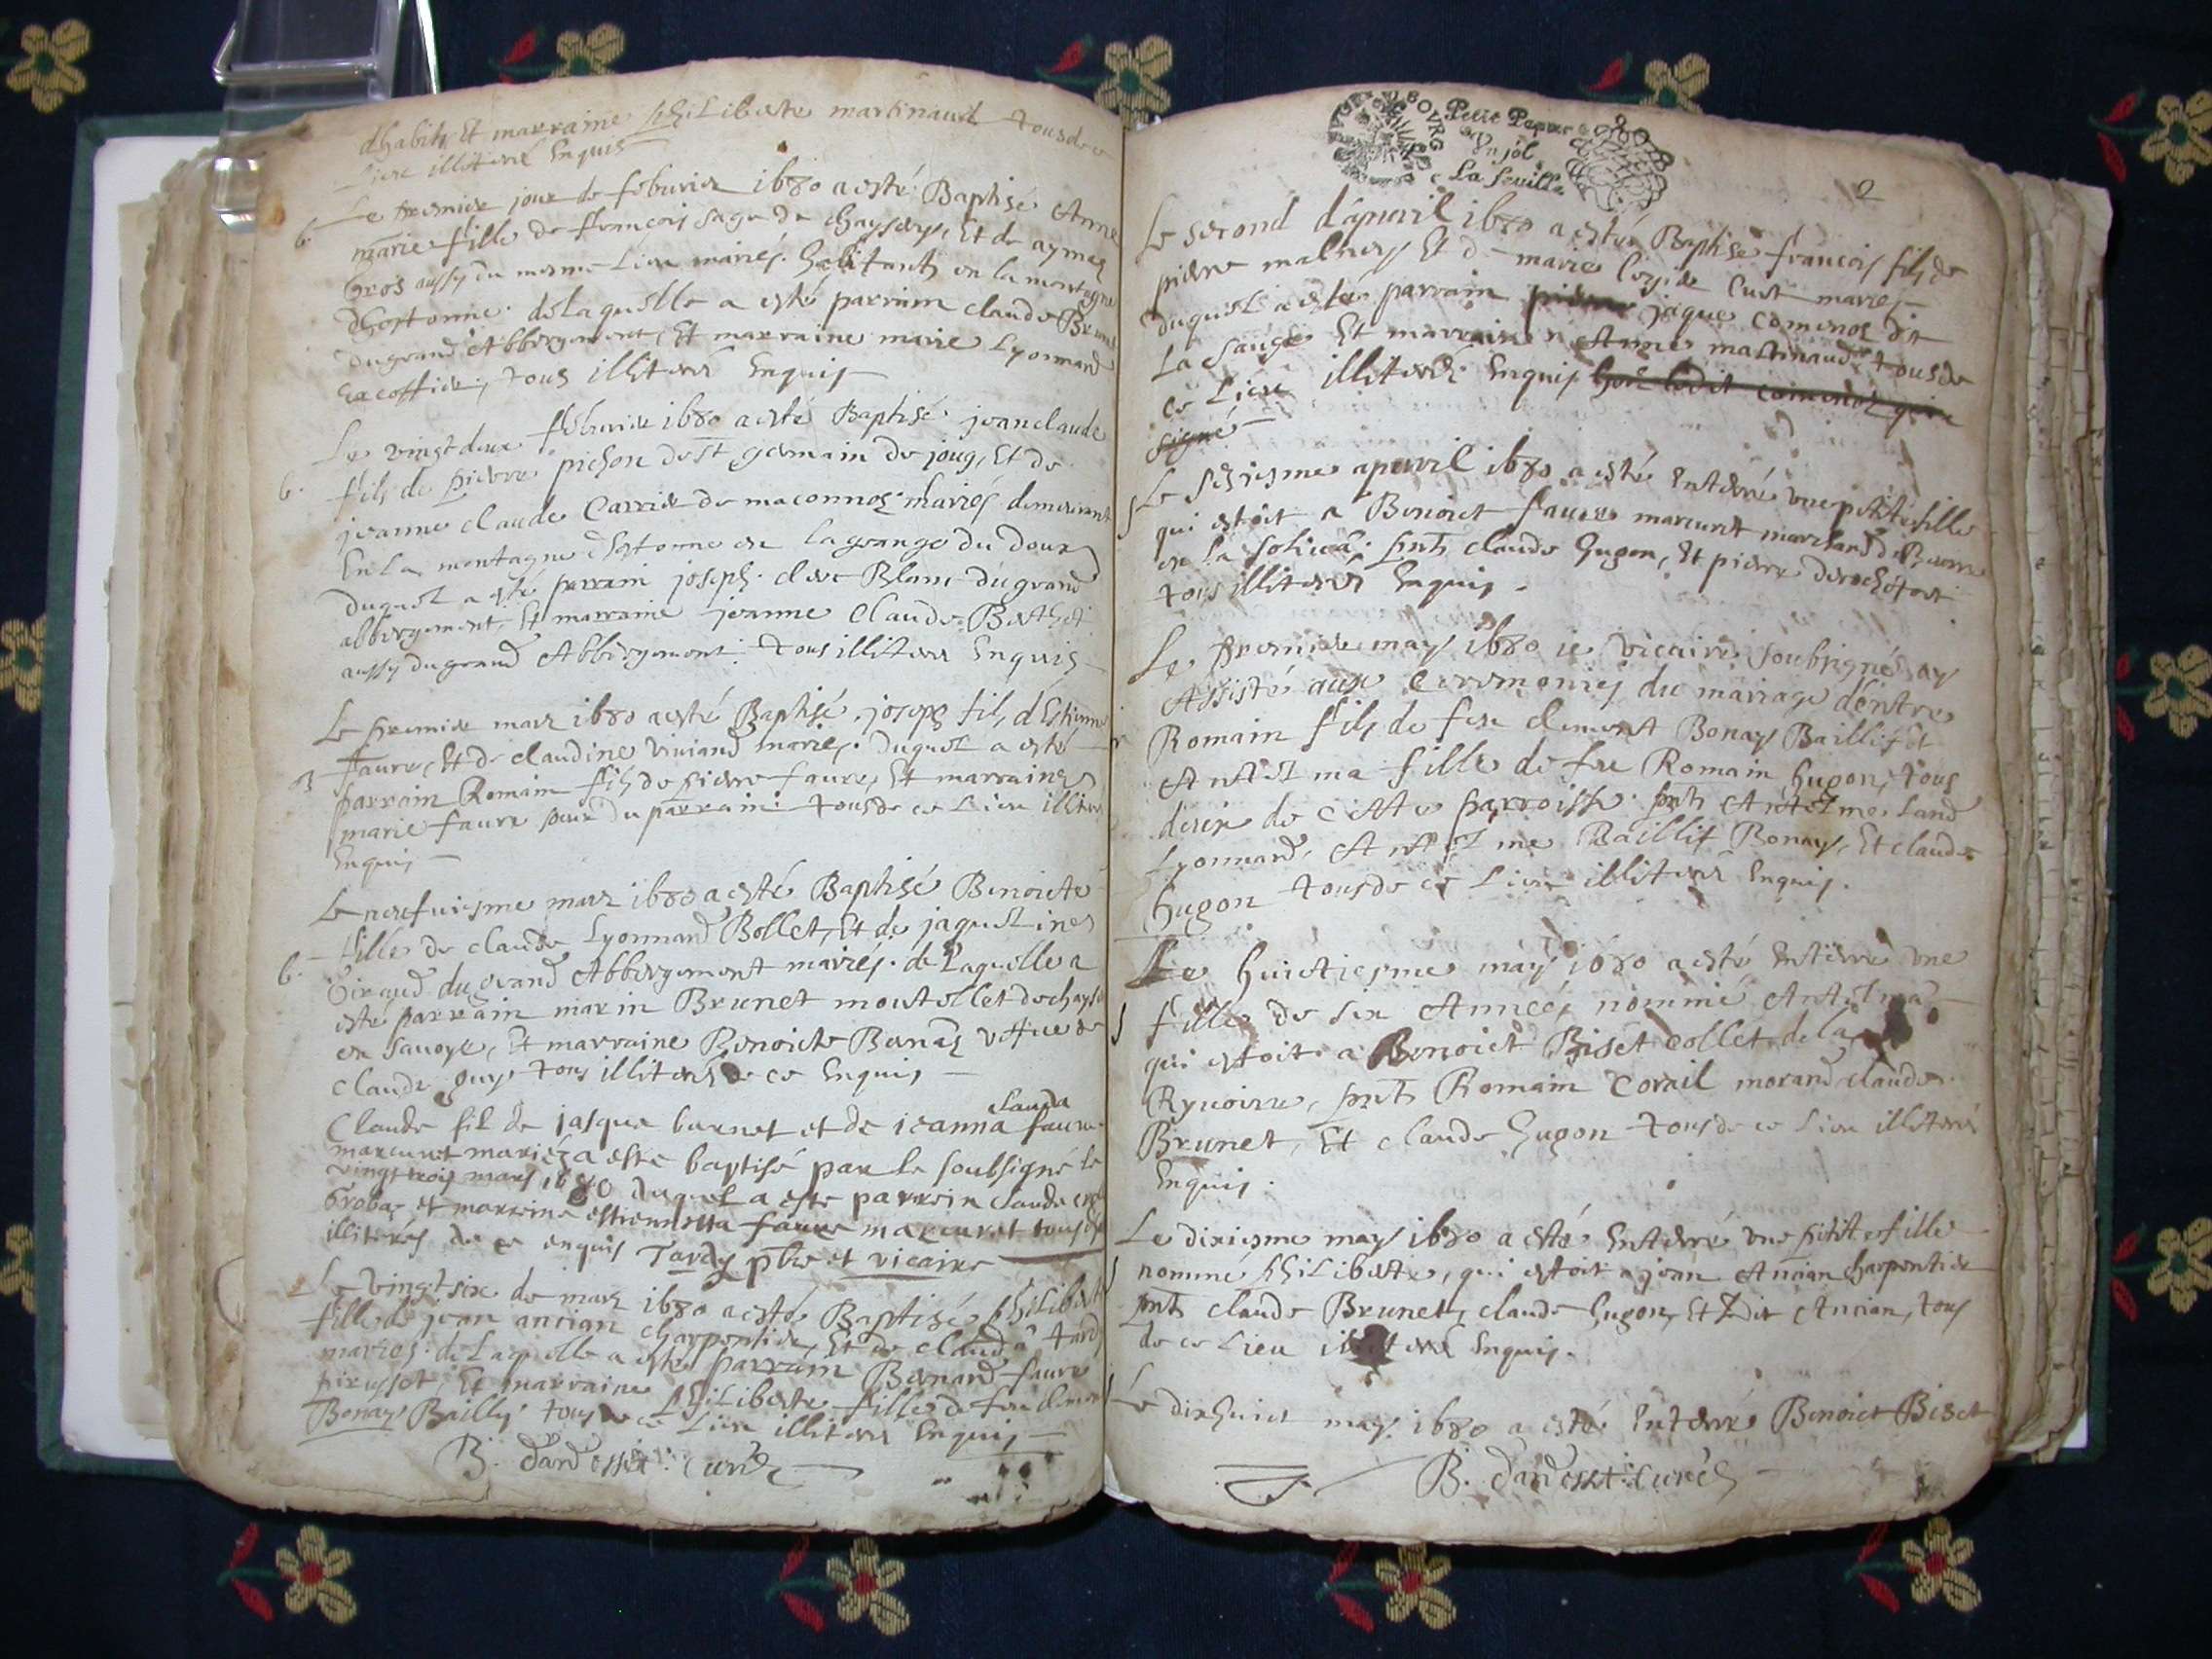 dhabit, Et marraine philiberte martinaud tous de ce
Lieu illiterés Enquis
Le premier jour de feburier 1680 a esté Baptisé Anne
b.
marie fille de françois sage de chaysery, Et de aymez
Gros aussy du mesme Lieu mariés. habitants en la montagne
dhostonne. de Laquelle a esté parrain claude Brun
du grand Abbergement, Et marraine marie Lyonnard
tous illiterés Enquis
Le vingt deux feburier 1680 a esté Baptisé jean claude
b.
fils de pierre pichon de st germain de joug, Et de
jeanne claude Carrier de maconnes mariés demeurant
En La montagne dhostonne en la grange du doux
duquel a esté parrain joseph clerc Blanc du grand
abbergement, Et marraine jeanne claude Berthet
aussy du grand Abbergement. tous illiterés Enquis
Le premier mars 1680 a esté Baptisé joseph fils d'Estienne
B
faure, Et de claudine viviand mariés. duquel a esté
parrain Romain fils de pierre faure, Et marraine
marie faure soeur du parrain. tous de ce Lieu illiterés
Enquis
Le neufuiesme mars 1680 a esté Baptisé Benoicte
fille de claude Lyonnard Bollet, Et de jaqueline
b.
Giraud du grand Abbergement mariés. de Laquelle a
esté parrain marin Brunet moutollet de chaysery
en savoye, Et marraine Benoicte Bernaz veffue de
claude guy tous illiterés de ce Enquis
clauda
Claude fil de jasque burnet et de jeanna faure
marcuret mariéz a este baptisé par le soubsigné le
vingt trois mars 1680 duquel a este parrein claude
Grobas et marreine estiennetta faure marcuret tous
illiterés de ce enquis Tardy pbre et vicaire
Le vingt six de mars 1680 a esté Baptisé philiberte
fille de jean ancian charpentier, Et de clauda tard
mariés. de Laquelle a esté parrain Bernard faure
pirussot, Et marraine philiberte fille de feu clement
Bonay Bailly tous de ce Lieu illiterés Enquis
B. dardesset curé
BOURG
Petit Papier
Un sol
La feuille
2
Le second d'apuril 1680 a esté Baptisé françois fils de
pierre malney Et de marie legier curt mariés
duquel a esté parrain pierre jaque comenos dit
La sauge Et marraine Anne martinaud tous de
ce Lieu illiterés Enquis hors ledit comenos qui a
signé
Le seziesme apuril 1680 a esté Enterré une petite fille
qui estoit a Benoict faure marcuret marchand
en la pnts claude hugon, Et pierre derochefort
tous illiterés Enquis.
Le premier may 1680 je vicaire soubsigné ay
Assisté aux Ceremonies du mariage d'entre
Romain fils de feu clement Bonay Baillif Et
Antelma fille de feu Romain hugon, tous
deux de Cette parroisse. pnts Antelme Land
Lyonnard, Antelme Baillif Bonay, Et claude
hugon tous de ce Lieu illiterés Enquis.
Le huictiesme may 1680 a esté Enterré une
fille de six Années nommé Antelma
qui estoit a Benoict Biset collet de la
Ryuoire, pnts Romain Corail morand claude
Brunet, Et claude hugon tous de ce Lieu illiterés
Enquis.
Le dixiesme may 1680 a esté Enterré une petite fille
nommé philiberte, qui estoit a jean Ancian charpentier
pnts claude Brunet, claude hugon, Et Ledit Ancian, tous
de ce Lieu illiterés Enquis.
Le dixhuict may 1680 a esté Enterré Benoict Biset
B. dardesset curé